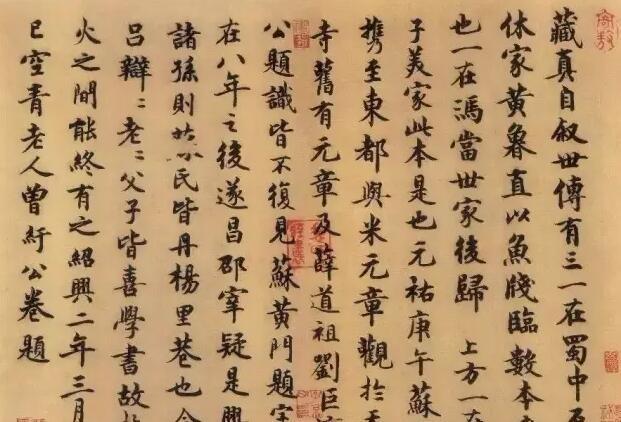 藏真自叙世傳有三一在蜀中石
休家黃魯直以魚牋臨數本
也一在馮當世家後歸 上方一在
子美家此本是也元祐庚午蘇
携至東都與米元章觀於天
寺舊有元章及薛道祖劉巨
公題識皆不復見蘇黃門題字
在八年之後遂昌邵宰疑是興
諸孫則 民皆丹楊里巷也今
呂辯〻老〻父子皆喜學書故
火之間能終有之紹興二年三月
巳空青老人曾紆公卷題